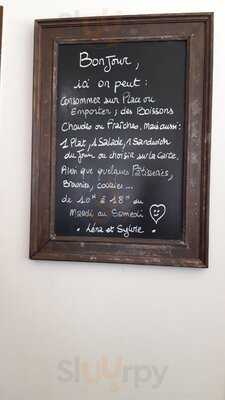 Bonjour,
ici on peut :
Consommer sur Place ou
Emporter ; des Boissons
Chaudes ou Fraîches, Mais aussi :
1 Plat, 1 Salade, 1 Sandwich
du Jour ou choisir sur la Carte,
Ainsi que quelques Pâtisseries,
Brownies, cookies ...
de 10H à 18H du
Mardi au Samedi
• Léna et Sylvie •
Sluurpy